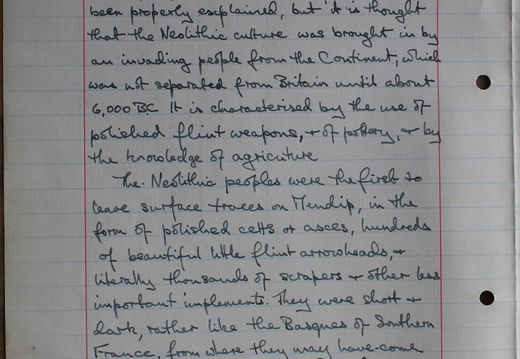 been properly explained, but it is thought
that the Neolithic culture was brought in by
an invading people from the Continent, which
was not separated from Britain until about
6,000 BC. It is characterised by the use of
polished flint weapons, + of pottery, + by
the knowledge of agriculture
The Neolithic peoples were the first to
leave surface traces on Mendip, in the
form of polished celts or axes, hundreds
of beautiful little flint arrowheads, +
literally thousands of scrapers + other less
important implements. They were short +
dark, rather like the Basques of Southern
France, from where they may have come